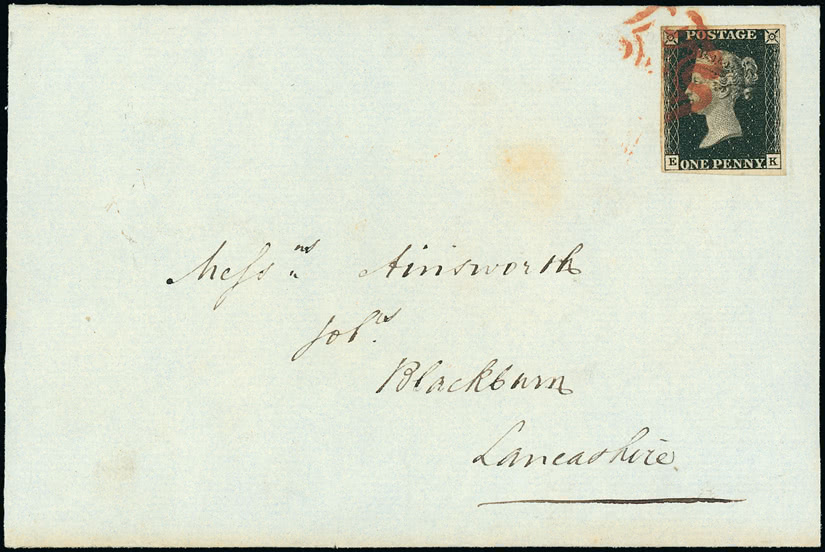 POSTAGE
E ONE PENNY. K
Messrs Ainsworth
Solrs
Blackburn
Lancashire